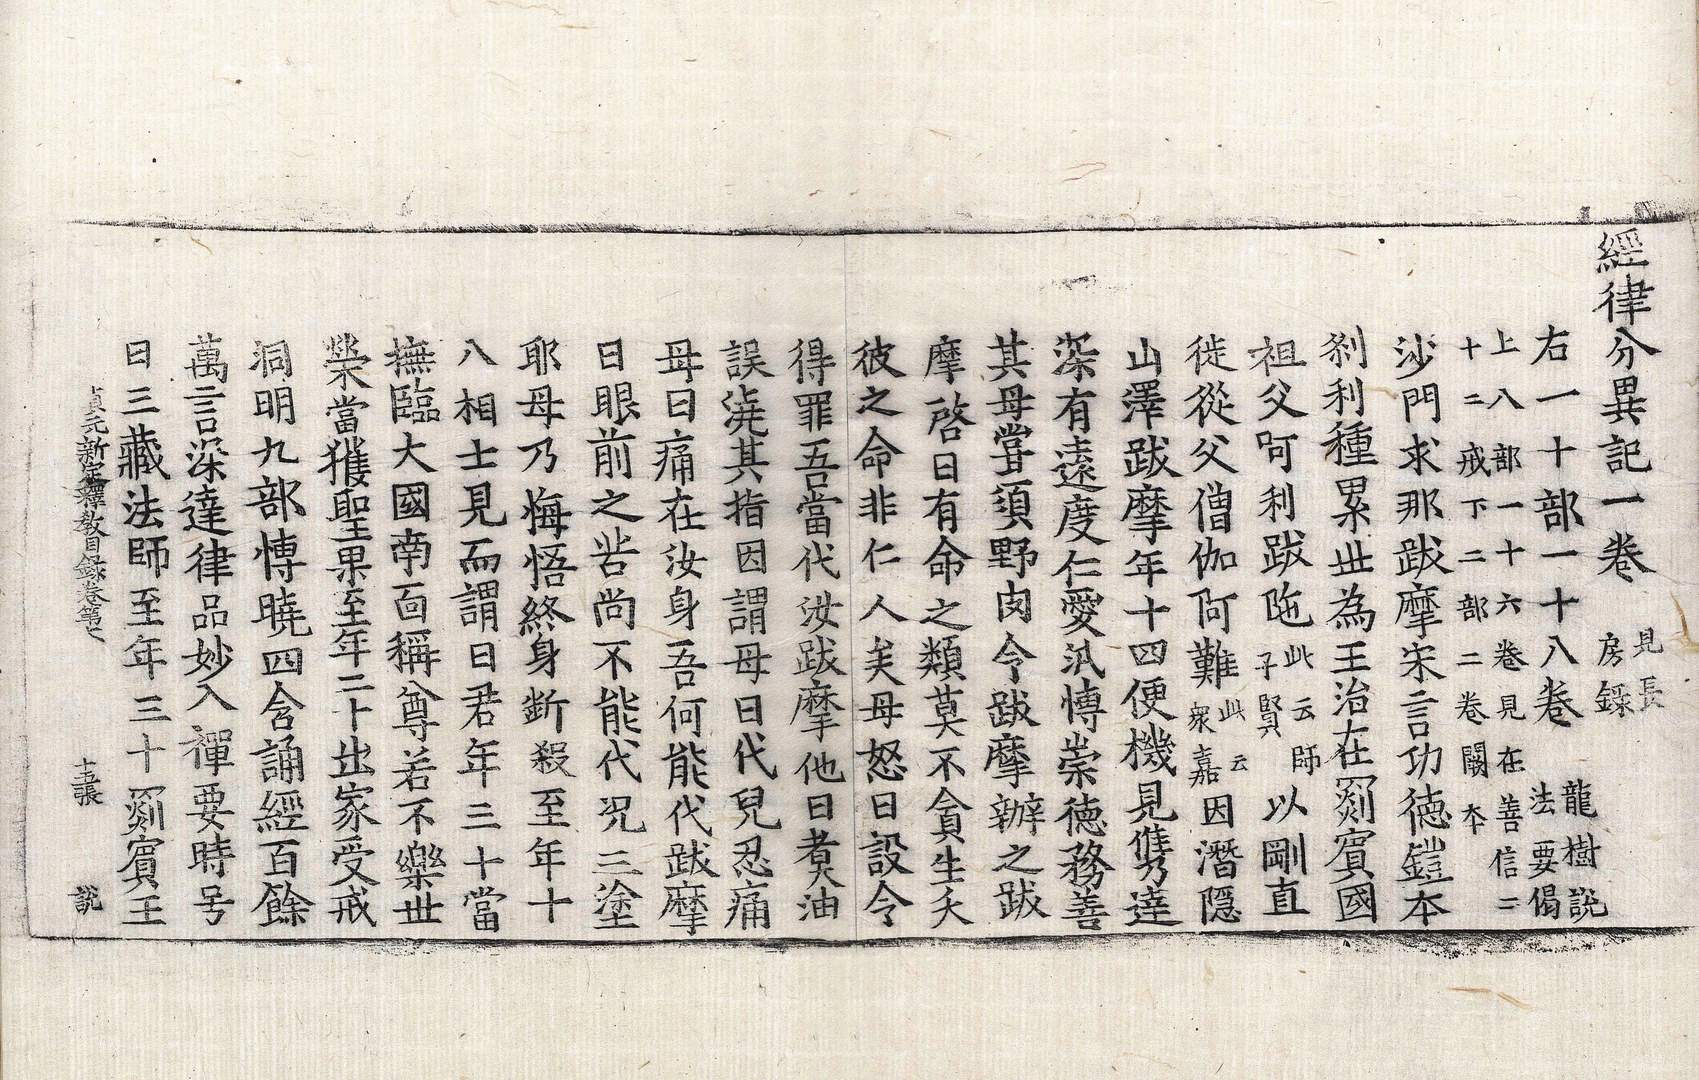 經律分異記一卷 見長房錄
右一十部一十八卷 龍樹說法要偈
上八部一十六卷見在善信二
十二戒下二部二卷闕本
沙門求那跋摩宋言功德鎧本
剎利種累世為王治在罽賓國
祖父呵利跋陁此云師子賢以剛直
徙從父僧伽阿難此云衆嘉因潛隱
山澤跋摩年十四便機見儁達
深有遠度仁愛汎博崇德務善
其母嘗須野肉令跋摩辦之跋
摩啓曰有命之類莫不貪生夭
彼之命非仁人矣母怒曰設令
得罪吾當代汝跋摩他日煑油
誤澆其指因謂母曰代兒忍痛
母曰痛在汝身吾何能代跋摩
曰眼前之苦尚不能代况三塗
耶母乃悔悟終身斷殺至年十
八相士見而謂曰君年三十當
撫臨大國南面稱尊若不樂世
榮當獲聖果至年二十出家受戒
洞明九部博曉四含誦經百餘
萬言深達律品妙入禪要時号
曰三藏法師至年三十罽賓王
貞元新定釋教目錄卷第七 十五張 說